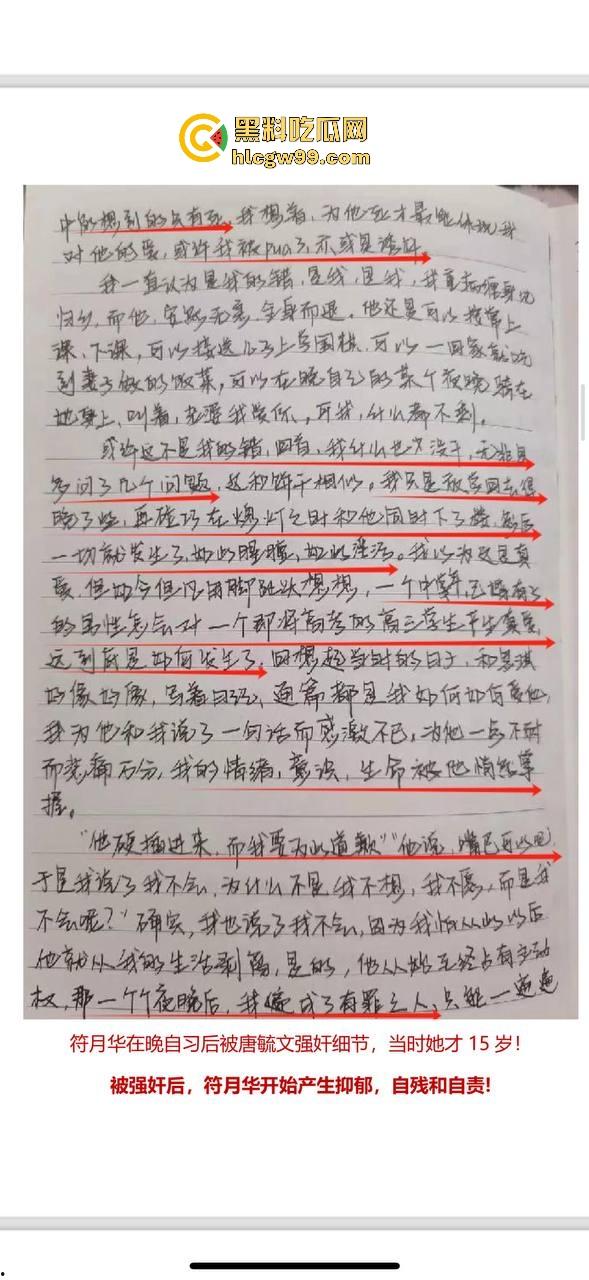 黑料吃瓜网
hlcgw99.com
中的想到的只有死,我想着,为他死才最能体现我
对他的爱,或许我被pua了,亦或是诱奸。
我一直认为是我的错,是我,是我,我重病缠身
归乡,而他,安然无恙,全身而退。他还是可以接着上
课、下课,可以接送儿子上学围棋,可以一回家就吃
到妻子做的饭菜,可以在晚自习的某个夜晚骑在
她身上,叫着,老婆我爱你,可我,什么都不剩。
或许这不是我的错,回首,我什么也没干,无非是
多问了几个问题,这和饼干相似。我只是放学回去得
晚了些,再碰巧在熄灯之时和他同时下了楼,然后
一切就发生了,如此腥膻,如此淫活。我以为这是真
爱,但如今但凡用脚趾头想想,一个中年,已婚有子
的男性怎会对一个即将高考的高三学生产生真爱,
这到底是如何发生了,回想起当时的日子,和思琪
好像好像,写着日记,通篇都是我如何如何爱他,
我为他和我说了一句话而感激不已,为他一点不耐
而悲痛万分,我的情绪,意识,生命被他悄然掌
握。
“他硬插进来,而我要为此道歉”“他说,嘴巴可以吧,
于是我说了我不会,为什么不是我不想,我不愿,而是我
不会呢?”确实,我也说了我不会,因为我怕从此以后
他就从我的生活剥离,是的,他从始至终占有主动
权,那一个个夜晚后,我变成了有罪之人,只能一遍遍
符月华在晚自习后被唐毓文强奸细节,当时她才 15 岁!
被强奸后,符月华开始产生抑郁,自残和自责!